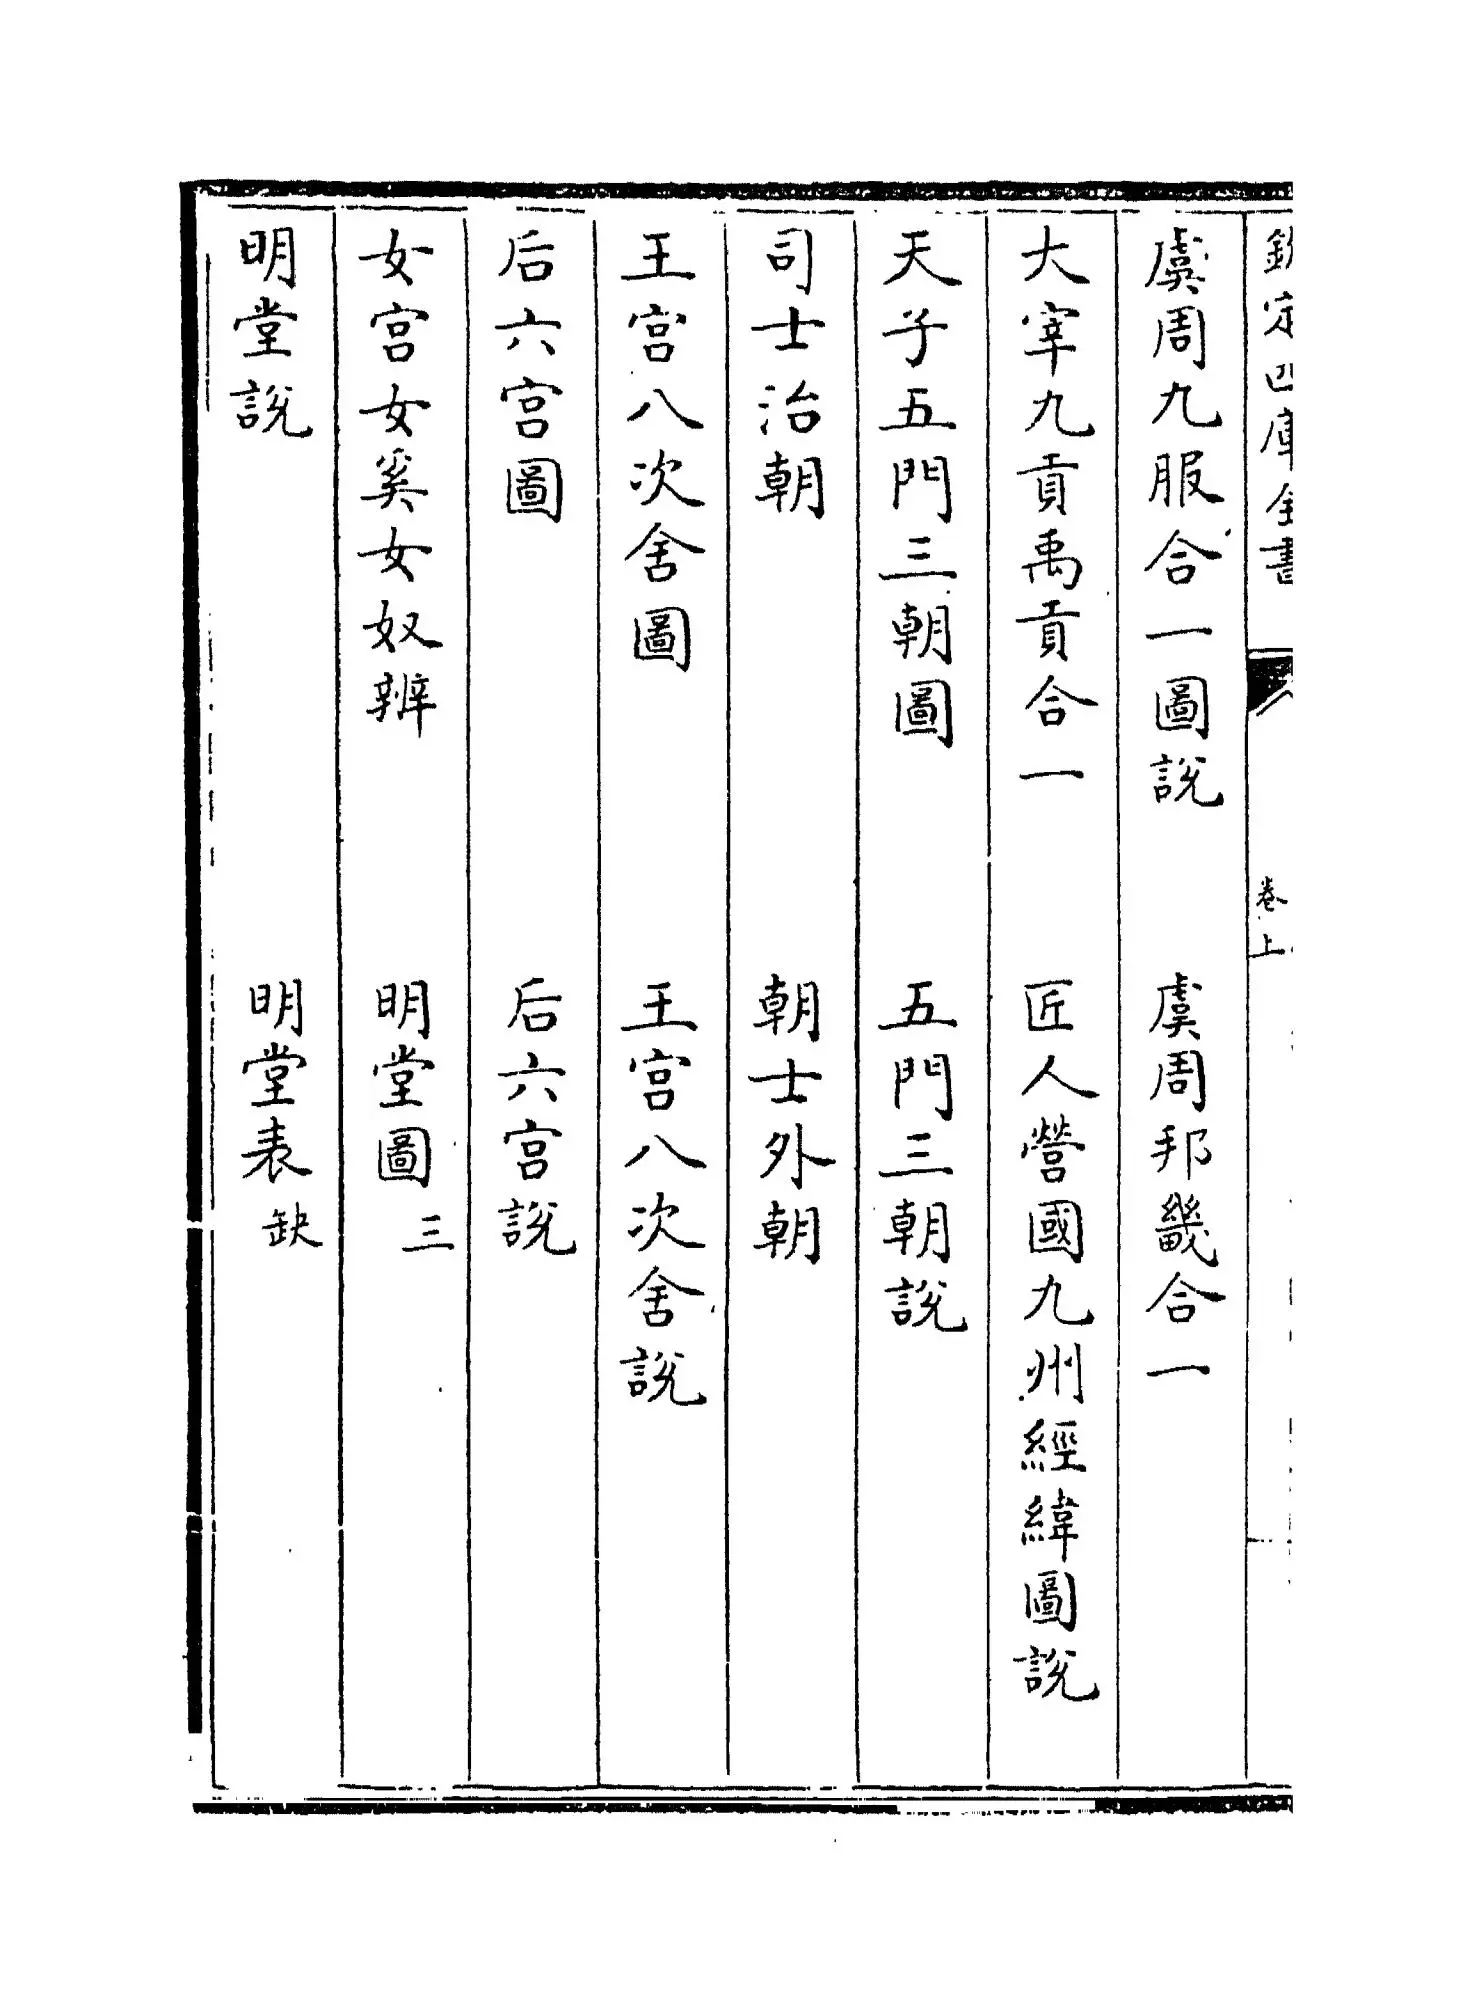 欽定四庫全書 卷上
虞周九服合一圖說 虞周邦畿合一
大宰九貢禹貢合一 匠人營國九州經緯圖說
天子五門三朝圖 五門三朝說
司士治朝 朝士外朝
王宮八次舍圖 王宮八次舍說
后六宮圖 后六宮說
女宮女奚女奴辨 明堂圖三
明堂說 明堂表缺